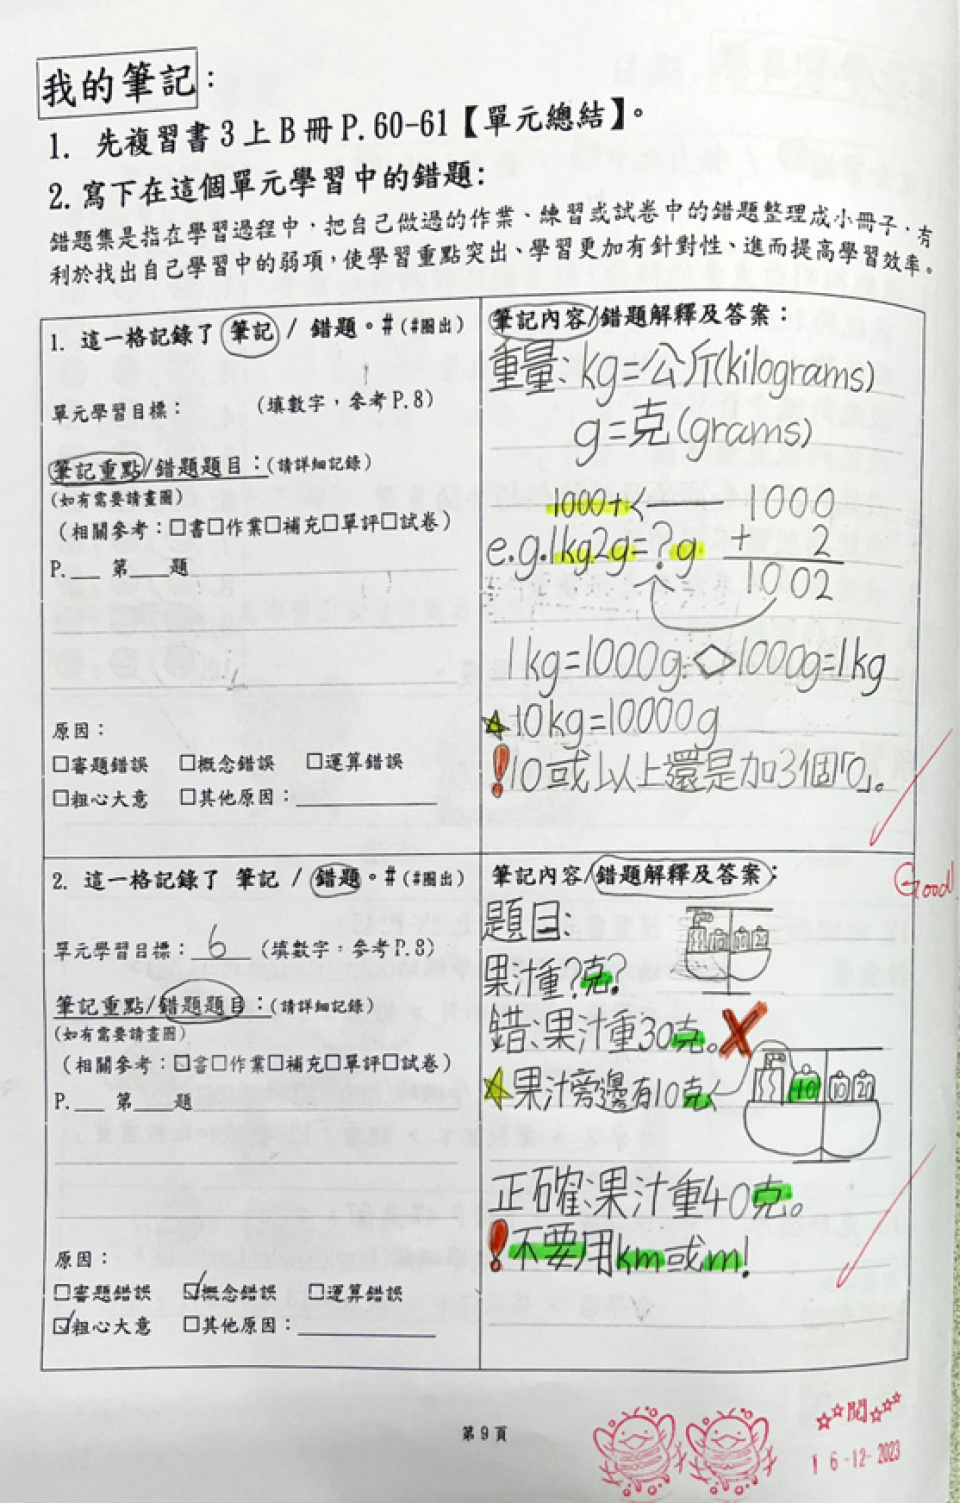 我的筆記：
1. 先複習書3上B冊P.60-61【單元總結】。
2. 寫下在這個單元學習中的錯題：
錯題集是指在學習過程中，把自己做過的作業、練習或試卷中的錯題整理成小冊子，有
利於找出自己學習中的弱項，使學習重點突出、學習更加有針對性、進而提高學習效率。
1. 這一格記錄了 筆記 / 錯題。#(#圈出)
單元學習目標：1 (填數字，參考P.8)
筆記重點/錯題題目：(請詳細記錄)
(如有需要請畫圖)
(相關參考：□書□作業□補充□單評□試卷)
P.___ 第____題
原因：
□審題錯誤 □概念錯誤 □運算錯誤
□粗心大意 □其他原因：__________
筆記內容/錯題解釋及答案：
重量：kg=公斤(kilograms)
g=克(grams)
1000+ ← 1000
e.g.1kg2g=?g + 2
1002
1kg=1000g 1000g=1kg
10kg=10000g
!10或以上還是加3個「0」。
Good!
2. 這一格記錄了 筆記 / 錯題。#(#圈出)
單元學習目標：6 (填數字，參考P.8)
筆記重點/錯題題目：(請詳細記錄)
(如有需要請畫圖)
(相關參考：☑書□作業□補充□單評□試卷)
P.___ 第____題
原因：
□審題錯誤 ☑概念錯誤 □運算錯誤
☑粗心大意 □其他原因：__________
筆記內容/錯題解釋及答案：
題目：
果汁重?克?
錯：果汁重30克。
果汁旁邊有10克
10 10 20
正確：果汁重40克。
!不要用km或m!
第9頁
閱
6-12-2023